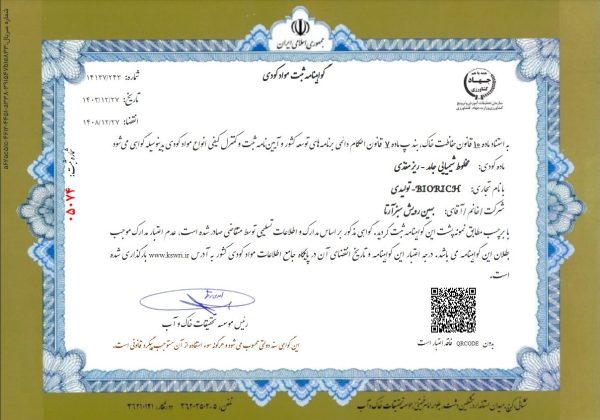 جمهوری اسلامی ایران
همه با هم
جهاد
کشاورزی
گواهینامه ثبت مواد کودی
شماره: ۱۴۱۲۷/۲۴۳
تاریخ: ۱۴۰۳/۱۲/۲۷
انقضاء: ۱۴۰۸/۱۲/۲۷
به استناد ماده ۱۰ قانون حفاظت خاک، بند پ ماده ۷ قانون احکام دائمی برنامه‌های توسعه کشور و آیین‌نامه ثبت و کنترل کیفی انواع مواد کودی بدینوسیله گواهی می‌شود
ماده کودی: مخلوط شیمیایی جامد - ریزمغذی
با نام تجاری: BIORICH- تولیدی
شرکت / خانم / آقای: بهین رویش سبز آرتا
با برچسب مطابق نمونه پشت این گواهینامه ثبت گردید. گواهی مذکور بر اساس مدارک و اطلاعات تسلیمی توسط متقاضی صادر شده است، عدم اعتبار مدارک موجب
بطلان این گواهینامه می باشد. درجه اعتبار این گواهینامه و تاریخ انقضای آن در پایگاه جامع اطلاعات مواد کودی کشور به آدرس www.kswri.ir بارگذاری شده
است.
رئیس موسسه تحقیقات خاک و آب
بدون QRCODE فاقد اعتبار است
این گواهی سند دولتی محسوب می شود و هرگونه سوء استفاده از آن مستوجب پیگرد قانونی است.
شماره ثبت: ۰۵۰۷۴
شماره سریال:
تلفن: ۳۶۲۰۳۵۰۲-۵ دورنگار: ۳۶۲۱۰۱۲۱